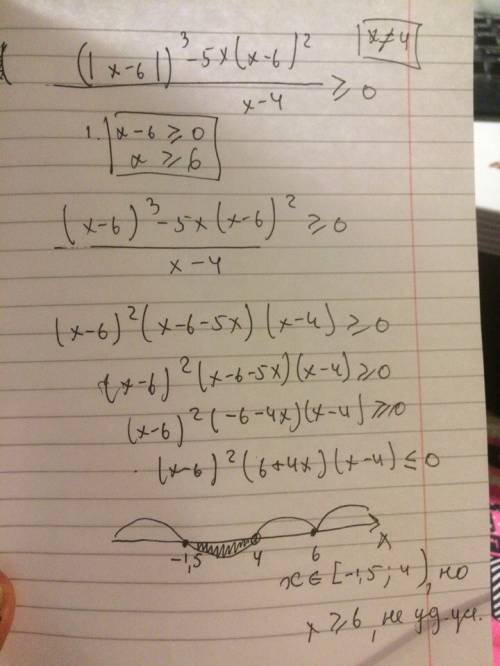 (|x-6|)³-5x(x-6)² / x-4 ≥ 0   x≠4
1. x-6 ≥ 0
x ≥ 6
(x-6)³-5x(x-6)² / x-4 ≥ 0
(x-6)²(x-6-5x)(x-4) ≥ 0
(x-6)²(x-6-5x)(x-4) ≥ 0
(x-6)²(-6-4x)(x-4) ≥ 0
(x-6)²(6+4x)(x-4) ≤ 0
-1,5 4 6 x
x∈[-1,5; 4), но
x ≥ 6, не уд. ус.